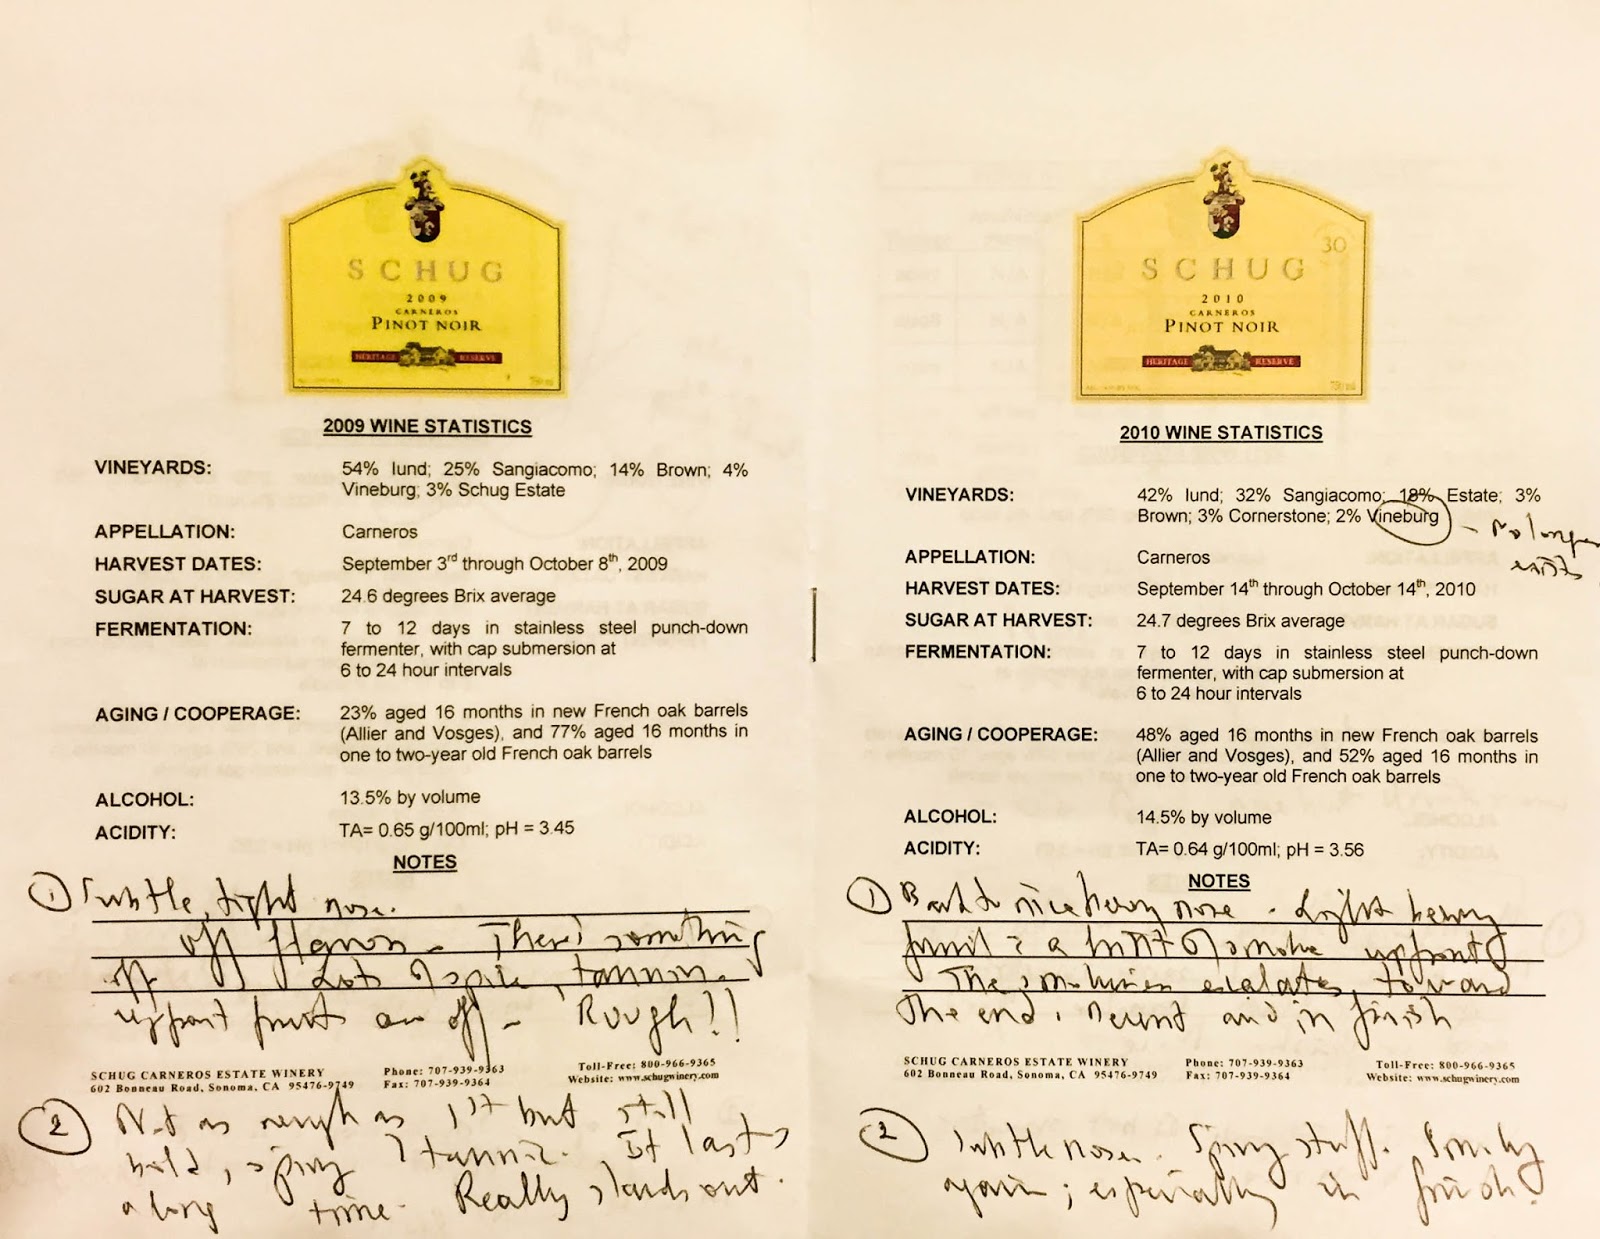 SCHUG
2009
CARNEROS
PINOT NOIR
HERITAGE RESERVE
750 ml
2009 WINE STATISTICS
VINEYARDS: 54% Iund; 25% Sangiacomo; 14% Brown; 4%
Vineburg; 3% Schug Estate
APPELLATION: Carneros
HARVEST DATES: September 3rd through October 8th, 2009
SUGAR AT HARVEST: 24.6 degrees Brix average
FERMENTATION: 7 to 12 days in stainless steel punch-down
fermenter, with cap submersion at
6 to 24 hour intervals
AGING / COOPERAGE: 23% aged 16 months in new French oak barrels
(Allier and Vosges), and 77% aged 16 months in
one to two-year old French oak barrels
ALCOHOL: 13.5% by volume
ACIDITY: TA= 0.65 g/100ml; pH = 3.45
NOTES
① Subtle, tight nose.
off flavors - There's something
off Lots of spice, tannin.
upfront fruits are off - Rough!!
SCHUG CARNEROS ESTATE WINERY Phone: 707-939-9363 Toll-Free: 800-966-9365
602 Bonneau Road, Sonoma, CA 95476-9749 Fax: 707-939-9364 Website: www.schugwinery.com
② Not as rough as 1st but still
bold, spicy & tannic. It lasts
a long time. Really stands out.
SCHUG
30
2010
CARNEROS
PINOT NOIR
HERITAGE RESERVE
750 ml
2010 WINE STATISTICS
VINEYARDS: 42% Iund; 32% Sangiacomo; 18% Estate; 3%
Brown; 3% Cornerstone; 2% Vineburg - No longer
exists
APPELLATION: Carneros
HARVEST DATES: September 14th through October 14th, 2010
SUGAR AT HARVEST: 24.7 degrees Brix average
FERMENTATION: 7 to 12 days in stainless steel punch-down
fermenter, with cap submersion at
6 to 24 hour intervals
AGING / COOPERAGE: 48% aged 16 months in new French oak barrels
(Allier and Vosges), and 52% aged 16 months in
one to two-year old French oak barrels
ALCOHOL: 14.5% by volume
ACIDITY: TA= 0.64 g/100ml; pH = 3.56
NOTES
① Back to nice heavy nose - Light berry
fruit & a hint of smoke upfront
The smokiness escalates toward
the end. and in finish
SCHUG CARNEROS ESTATE WINERY Phone: 707-939-9363 Toll-Free: 800-966-9365
602 Bonneau Road, Sonoma, CA 95476-9749 Fax: 707-939-9364 Website: www.schugwinery.com
② Subtle nose. Spicy stuff. Smoky
again; especially in finish.